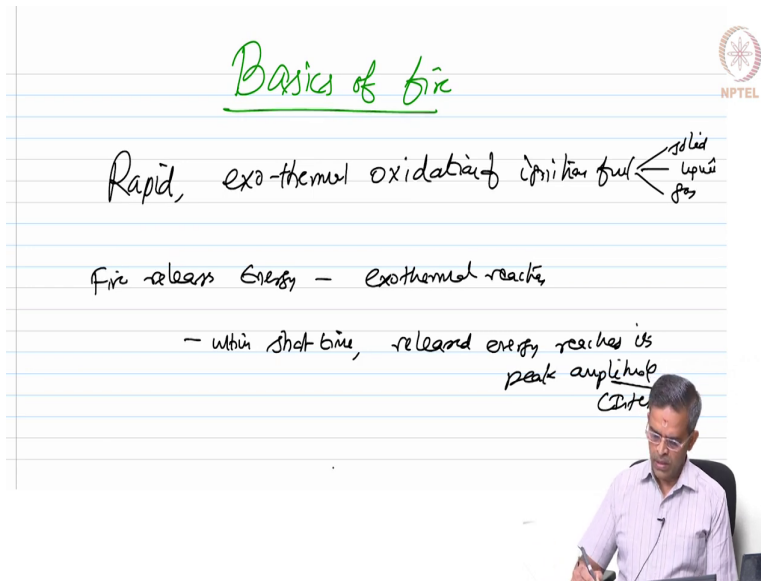 Basics of fire
NPTEL
Rapid, exo-thermal oxidation of ignition fuel
solid
liquid
gas
Fire releases Energy - exothermal reaction
- within short time, released energy reaches its
peak amplitude
(Inte